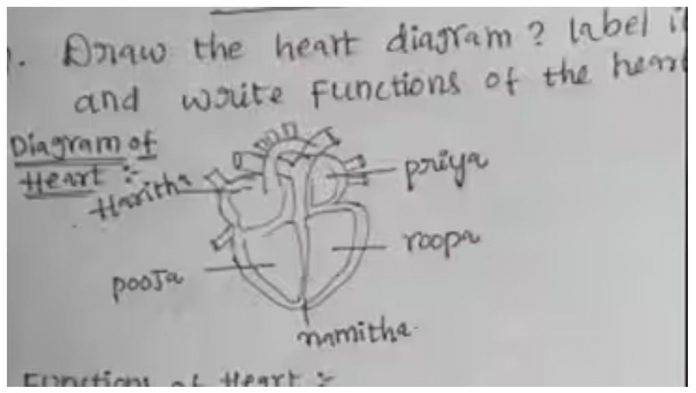 Draw the heart diagram? label i
and write functions of the heart
Diagram of
Heart :-
Haritha
priya
roopa
pooja
namitha
Functions of Heart :-